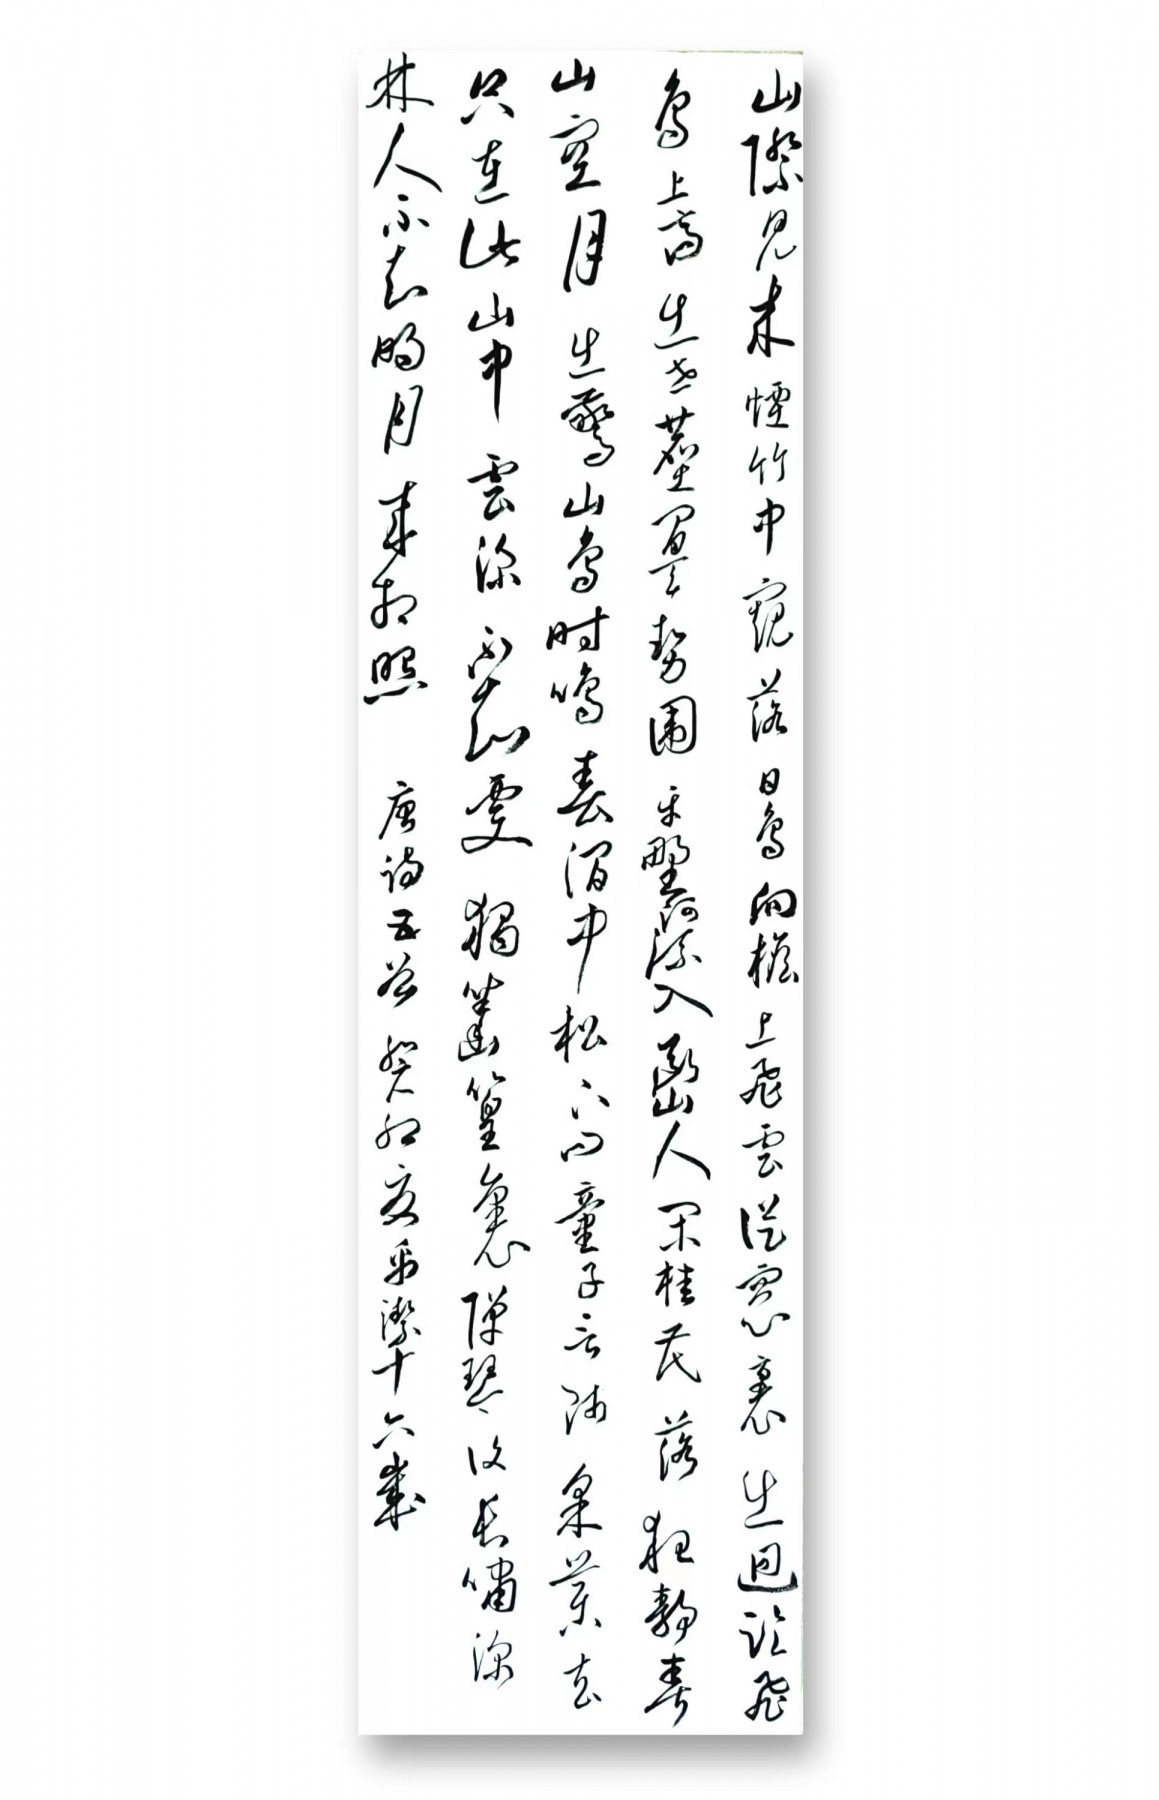 山際見來煙竹中窺落日鳥向檐上飛雲從窗裏出迥臨飛
鳥上高出世塵間天勢圍平野河流入斷山人閑桂花落夜靜春
山空月出驚山鳥時鳴春澗中松下問童子言師采藥去
只在此山中雲深不知處獨坐幽篁裏彈琴復長嘯深
林人不知明月來相照 唐詩五首 癸卯夏 潔十六歲